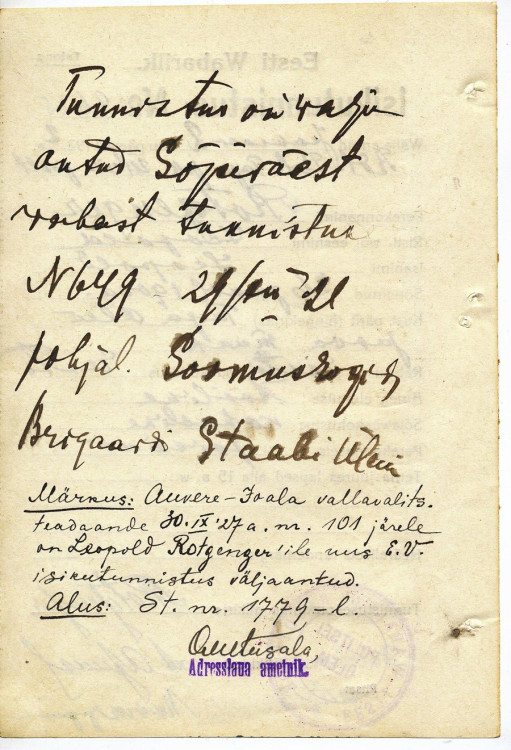 Tunnistus on walja
antud Sõjaväest
wabast tunnistus
N 649 - 29/
põhjal. Soomusrongide
Brigaadi Staabi Ülem
Märkus: Auvere-Joala vallavalits.
teadaande 30.IX'27 a. nr. 101 järele
on Leopold Rotgenger'ile uus E.V.
isikutunnistus väljaantud.
Alus: St. nr. 1779-l.
Adresslaua ametnik.